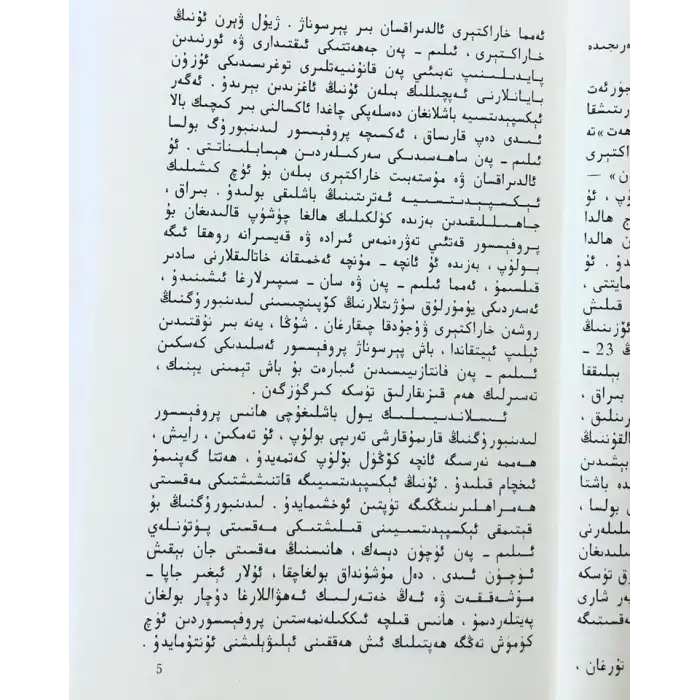 ئەمما خاراكتېرى ئالدىراقسان بىر پېرسوناژ . ژيۇل ۋېرن ئۇنىڭ
خاراكتېرى ، ئىلىم - پەن جەھەتتىكى ئىقتىدارى ۋە ئورنىدىن
پايدىلىنىپ تەبىئىي پەن قانۇنىيەتلىرى توغرىسىدىكى ئۇزۇن
بايانلارنى ئەپچىللىك بىلەن ئۇنىڭ ئاغزىدىن بېرىدۇ . ئەگەر
ئېكسپېدىتسىيە باشلانغان دەسلەپكى چاغدا ئاكسالنى بىر كىچىك بالا
ئىدى دەپ قارىساق ، ئەكسىچە پروفېسسور لىدىنبورۇگ بولسا
ئىلىم - پەن ساھەسىدىكى سەركىلەردىن ھېسابلىناتتى . ئۇ
ئالدىراقسان ۋە مۇستەبىت خاراكتېرى بىلەن بۇ ئۈچ كىشىلىك
ئېكسپېدىتسىيە ئەترىتىنىڭ باشلىقى بولىدۇ . بىراق ،
جاھىللىقىدىن بەزىدە كۈلكىلىك ھالغا چۈشۈپ قالىدىغان بۇ
پروفېسسور قەتئىي تەۋرەنمەس ئىرادە ۋە قەيسىرانە روھقا ئىگە
بولۇپ ، بەزىدە ئۇ ئانچە - مۇنچە ئەخمىقانە خاتالىقلارنى سادىر
قىلسىمۇ ، ئەمما ئىلىم - پەن ۋە سان - سىپىرلارغا ئىشىنىدۇ ،
ئەسەردىكى يۇمۇرلۇق سۇژىتلارنىڭ كۆپىنچىسىنى لىدىنبورۇگنىڭ
روشەن خاراكتېرى ۋۇجۇدقا چىقارغان . شۇڭا ، يەنە بىر نۇقتىدىن
ئېلىپ ئېيتقاندا ، باش پېرسوناژ پروفېسسور ئەسلىدىكى كەسكىن
ئىلىم - پەن فانتازىيىسىدىن ئىبارەت بۇ باش تېمىنى يېنىك ،
تەسىرلىك ھەم قىزىقارلىق تۈسكە كىرگۈزگەن .
ئىسلاندىيىلىك يول باشلىغۇچى ھانس پروفېسسور
لىدىنبورۇگنىڭ قارىمۇقارشى تەرىپى بولۇپ ، ئۇ تەمكىن ، رايىش ،
ھەممە نەرسىگە ئانچە كۆڭۈل بۆلۈپ كەتمەيدۇ ، ھەتتا گەپنىمۇ
ئىخچام قىلىدۇ . ئۇنىڭ ئېكسپېدىتسىيىگە قاتنىشىشتىكى مەقسىتى
ھەمراھلىرىنىڭكىگە تۈپتىن ئوخشىمايدۇ . لىدىنبورۇگنىڭ بۇ
قېتىمقى ئېكسپېدىتسىيىنى قىلىشتىكى مەقسىتى پۈتۈنلەي
ئىلىم - پەن ئۈچۈن دېسەك ، ھانسنىڭ مەقسىتى جان بېقىش
ئۈچۈن ئىدى . دەل مۇشۇنداق بولغاچقا ، ئۇلار ئېغىر جاپا -
مۇشەققەت ۋە ئەڭ خەتەرلىك ئەھۋاللارغا دۇچار بولغان
پەيتلەردىمۇ ، ھانس قىلچە ئىككىلەنمەستىن پروفېسسوردىن ئۈچ
كۈمۈش تەڭگە ھەپتىلىك ئىش ھەققىنى ئېلىۋېلىشنى ئۇنتۇمايدۇ .
5
ەرىجىدە
جۈرئەت
ارىتىشقا
ھەت» تە
اكتېرى
ون» —
ۇپ ، ئۇ
ج ھالدا
ن ھالدا
ىدۇ . ئۇ
مايتتى ،
قىلىش
ئۆزىنىڭ
ڭ 23 -
بېلىققا
بىراق ،
ارىنلىق ،
القۇننىڭ
بېشىدىن
دە باشتا
بولسا ،
ىلىلەرنى
ىلىدىغان
ق تۈسكە
ەر شارى
ەقسىتىگە
تۇرغان ،